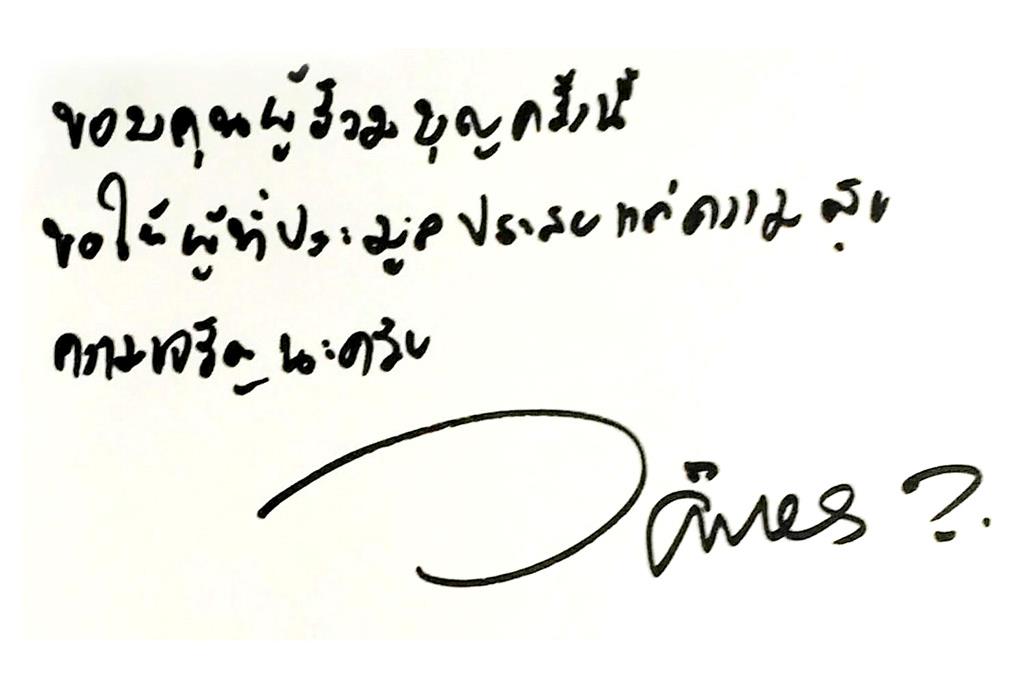 ขอบคุณผู้ร่วมบุญครั้งนี้
ขอให้ผู้ที่ประมูลประสบแต่ความสุข
ความเจริญนะครับ